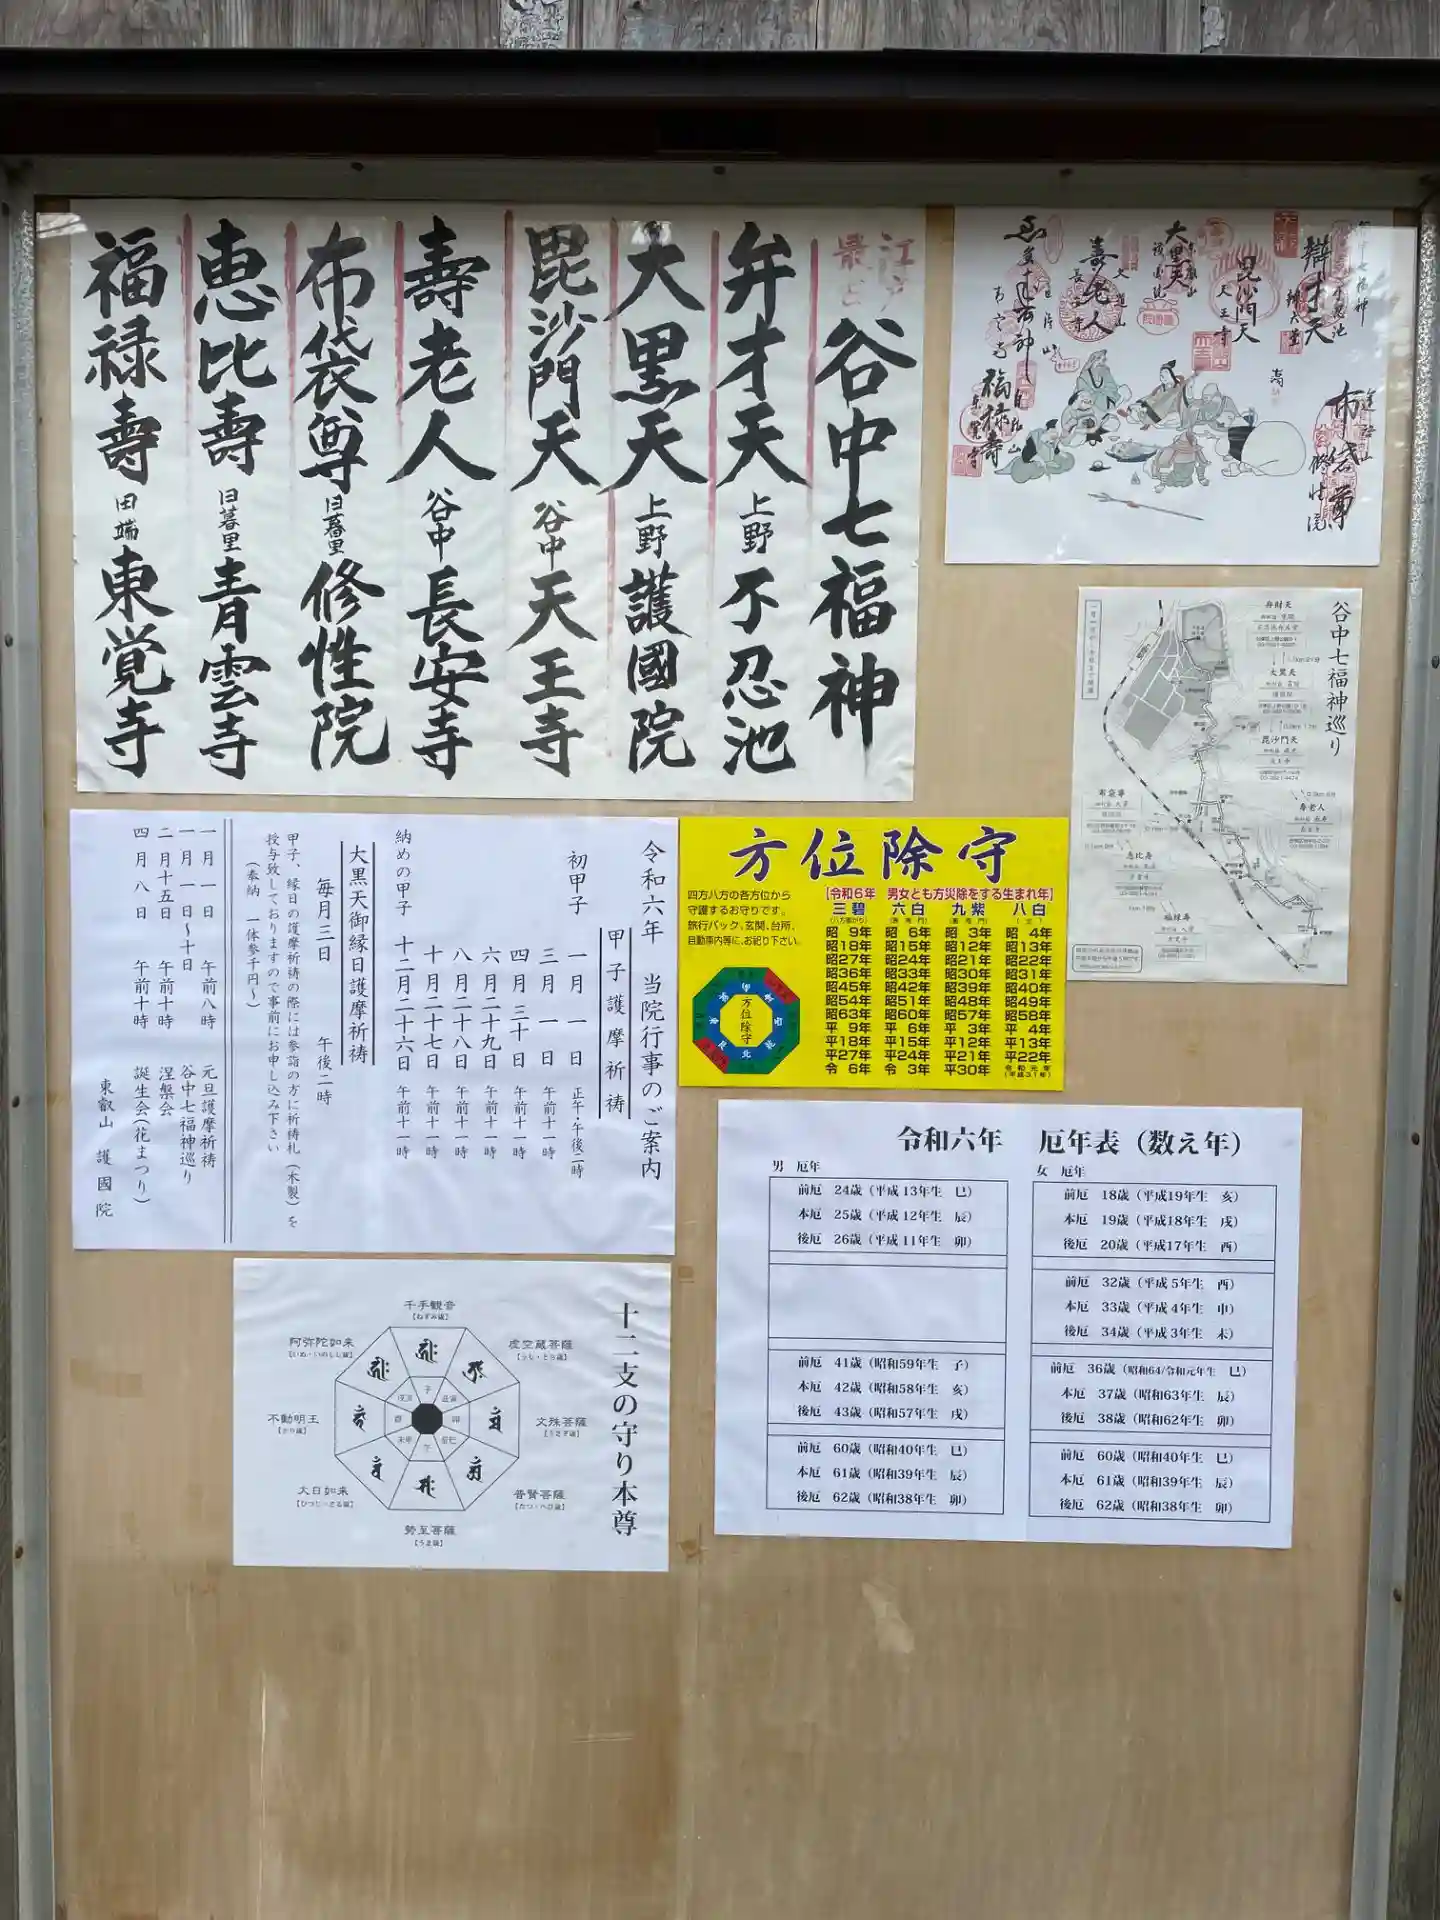 江戸
最古
谷中七福神
弁才天 上野 不忍池
大黒天 上野 護國院
毘沙門天 谷中 天王寺
壽老人 谷中 長安寺
布袋尊 日暮里 修性院
恵比壽 日暮里 青雲寺
福禄壽 田端 東覚寺
辯才天
毘沙門天
天王寺
大黒天
護国院
壽老人
長安寺
福禄寿
布袋尊
修性院
谷中七福神巡り
弁財天
大黒天
毘沙門天
寿老人
布袋尊
恵比寿
福禄寿
令和六年 当院行事のご案内
甲子護摩祈祷
初甲子 一月一日 正午・午後二時
三月一日 午前十一時
四月三十日 午前十一時
六月二十九日 午前十一時
八月二十八日 午前十一時
十月二十七日 午前十一時
納めの甲子 十二月二十六日 午前十一時
大黒天御縁日護摩祈祷
毎月三日 午後二時
甲子、縁日の護摩祈祷の際には参詣の方に祈祷札(木製)を
授与致しておりますので事前にお申し込み下さい
(奉納 一体参千円~)
一月一日 午前八時 元旦護摩祈祷
一月一日~十日 谷中七福神巡り
二月十五日 午前十時 涅槃会
四月八日 午前十時 誕生会(花まつり)
東叡山 護國院
方位除守
四方八方の各方位から
守護するお守りです。
旅行バック、玄関、台所、
自動車内等に、お祀り下さい。
【令和6年 男女とも方災除をする生まれ年】
三碧 六白 九紫 八白
昭9年 昭6年 昭3年 昭4年
昭18年 昭15年 昭12年 昭13年
昭27年 昭24年 昭21年 昭22年
昭36年 昭33年 昭30年 昭31年
昭45年 昭42年 昭39年 昭40年
昭54年 昭51年 昭48年 昭49年
昭63年 昭60年 昭57年 昭58年
平9年 平6年 平3年 平4年
平18年 平15年 平12年 平13年
平27年 平24年 平21年 平22年
令6年 令3年 平30年 令和元年
(平成31年)
方位除守
北
令和六年 厄年表(数え年)
男 厄年
前厄 24歳(平成13年生 巳)
本厄 25歳(平成12年生 辰)
後厄 26歳(平成11年生 卯)
前厄 41歳(昭和59年生 子)
本厄 42歳(昭和58年生 亥)
後厄 43歳(昭和57年生 戌)
前厄 60歳(昭和40年生 巳)
本厄 61歳(昭和39年生 辰)
後厄 62歳(昭和38年生 卯)
女 厄年
前厄 18歳(平成19年生 亥)
本厄 19歳(平成18年生 戌)
後厄 20歳(平成17年生 酉)
前厄 32歳(平成5年生 酉)
本厄 33歳(平成4年生 申)
後厄 34歳(平成3年生 未)
前厄 36歳(昭和64/令和元年生 巳)
本厄 37歳(昭和63年生 辰)
後厄 38歳(昭和62年生 卯)
前厄 60歳(昭和40年生 巳)
本厄 61歳(昭和39年生 辰)
後厄 62歳(昭和38年生 卯)
十二支の守り本尊
千手観音
【ねずみ歳】
虚空蔵菩薩
【うし・とら歳】
文殊菩薩
【うさぎ歳】
普賢菩薩
【たつ・へび歳】
勢至菩薩
【うま歳】
大日如来
【ひつじ・さる歳】
不動明王
【とり歳】
阿弥陀如来
【いぬ・いのしし歳】
子
丑寅
卯
辰巳
午
未申
酉
戌亥